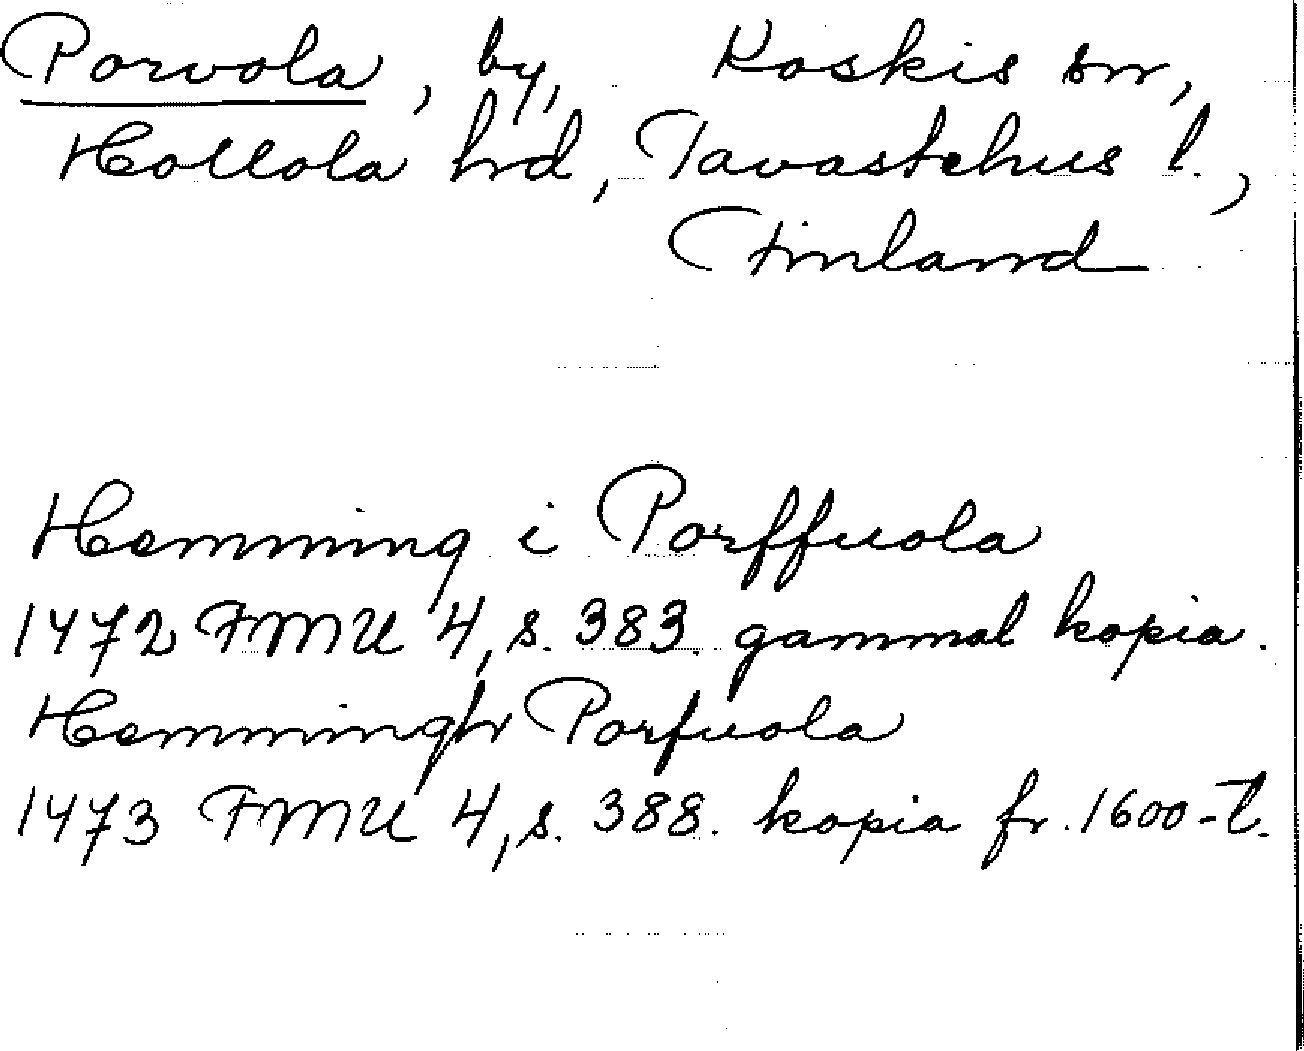 Porvola, by, Koskis sn,
Hollola hd, Tavastehus l.,
Finland
Hemming i Porffuola
1472 FMU 4, s. 383. gammal kopia.
Hemmingh Porfuola
1473 FMU 4, s. 388. kopia fr. 1600-t.